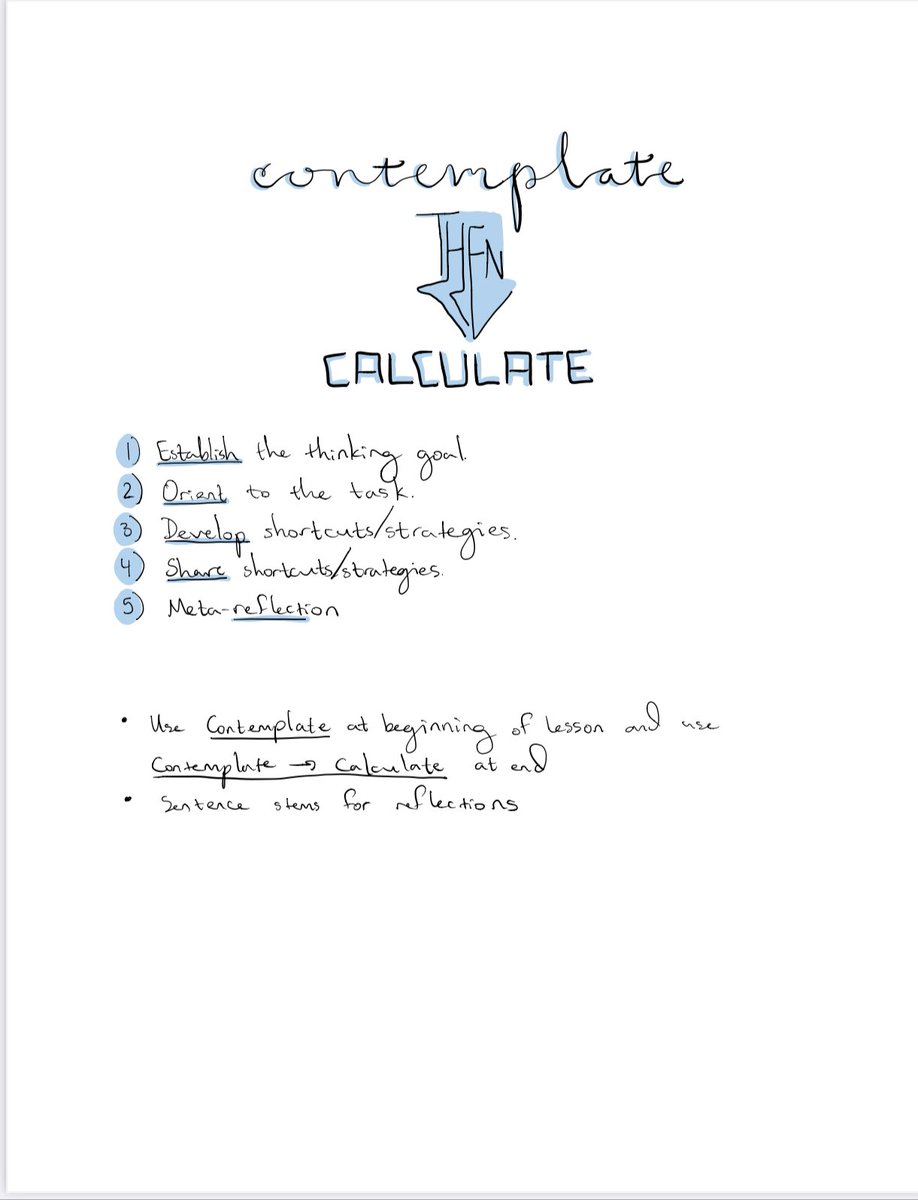 contemplate
THEN
CALCULATE
1) Establish the thinking goal.
2) Orient to the task.
3) Develop shortcuts/strategies.
4) Share shortcuts/strategies.
5) Meta-reflection
• Use Contemplate at beginning of lesson and use
Contemplate → Calculate at end
• Sentence stems for reflections